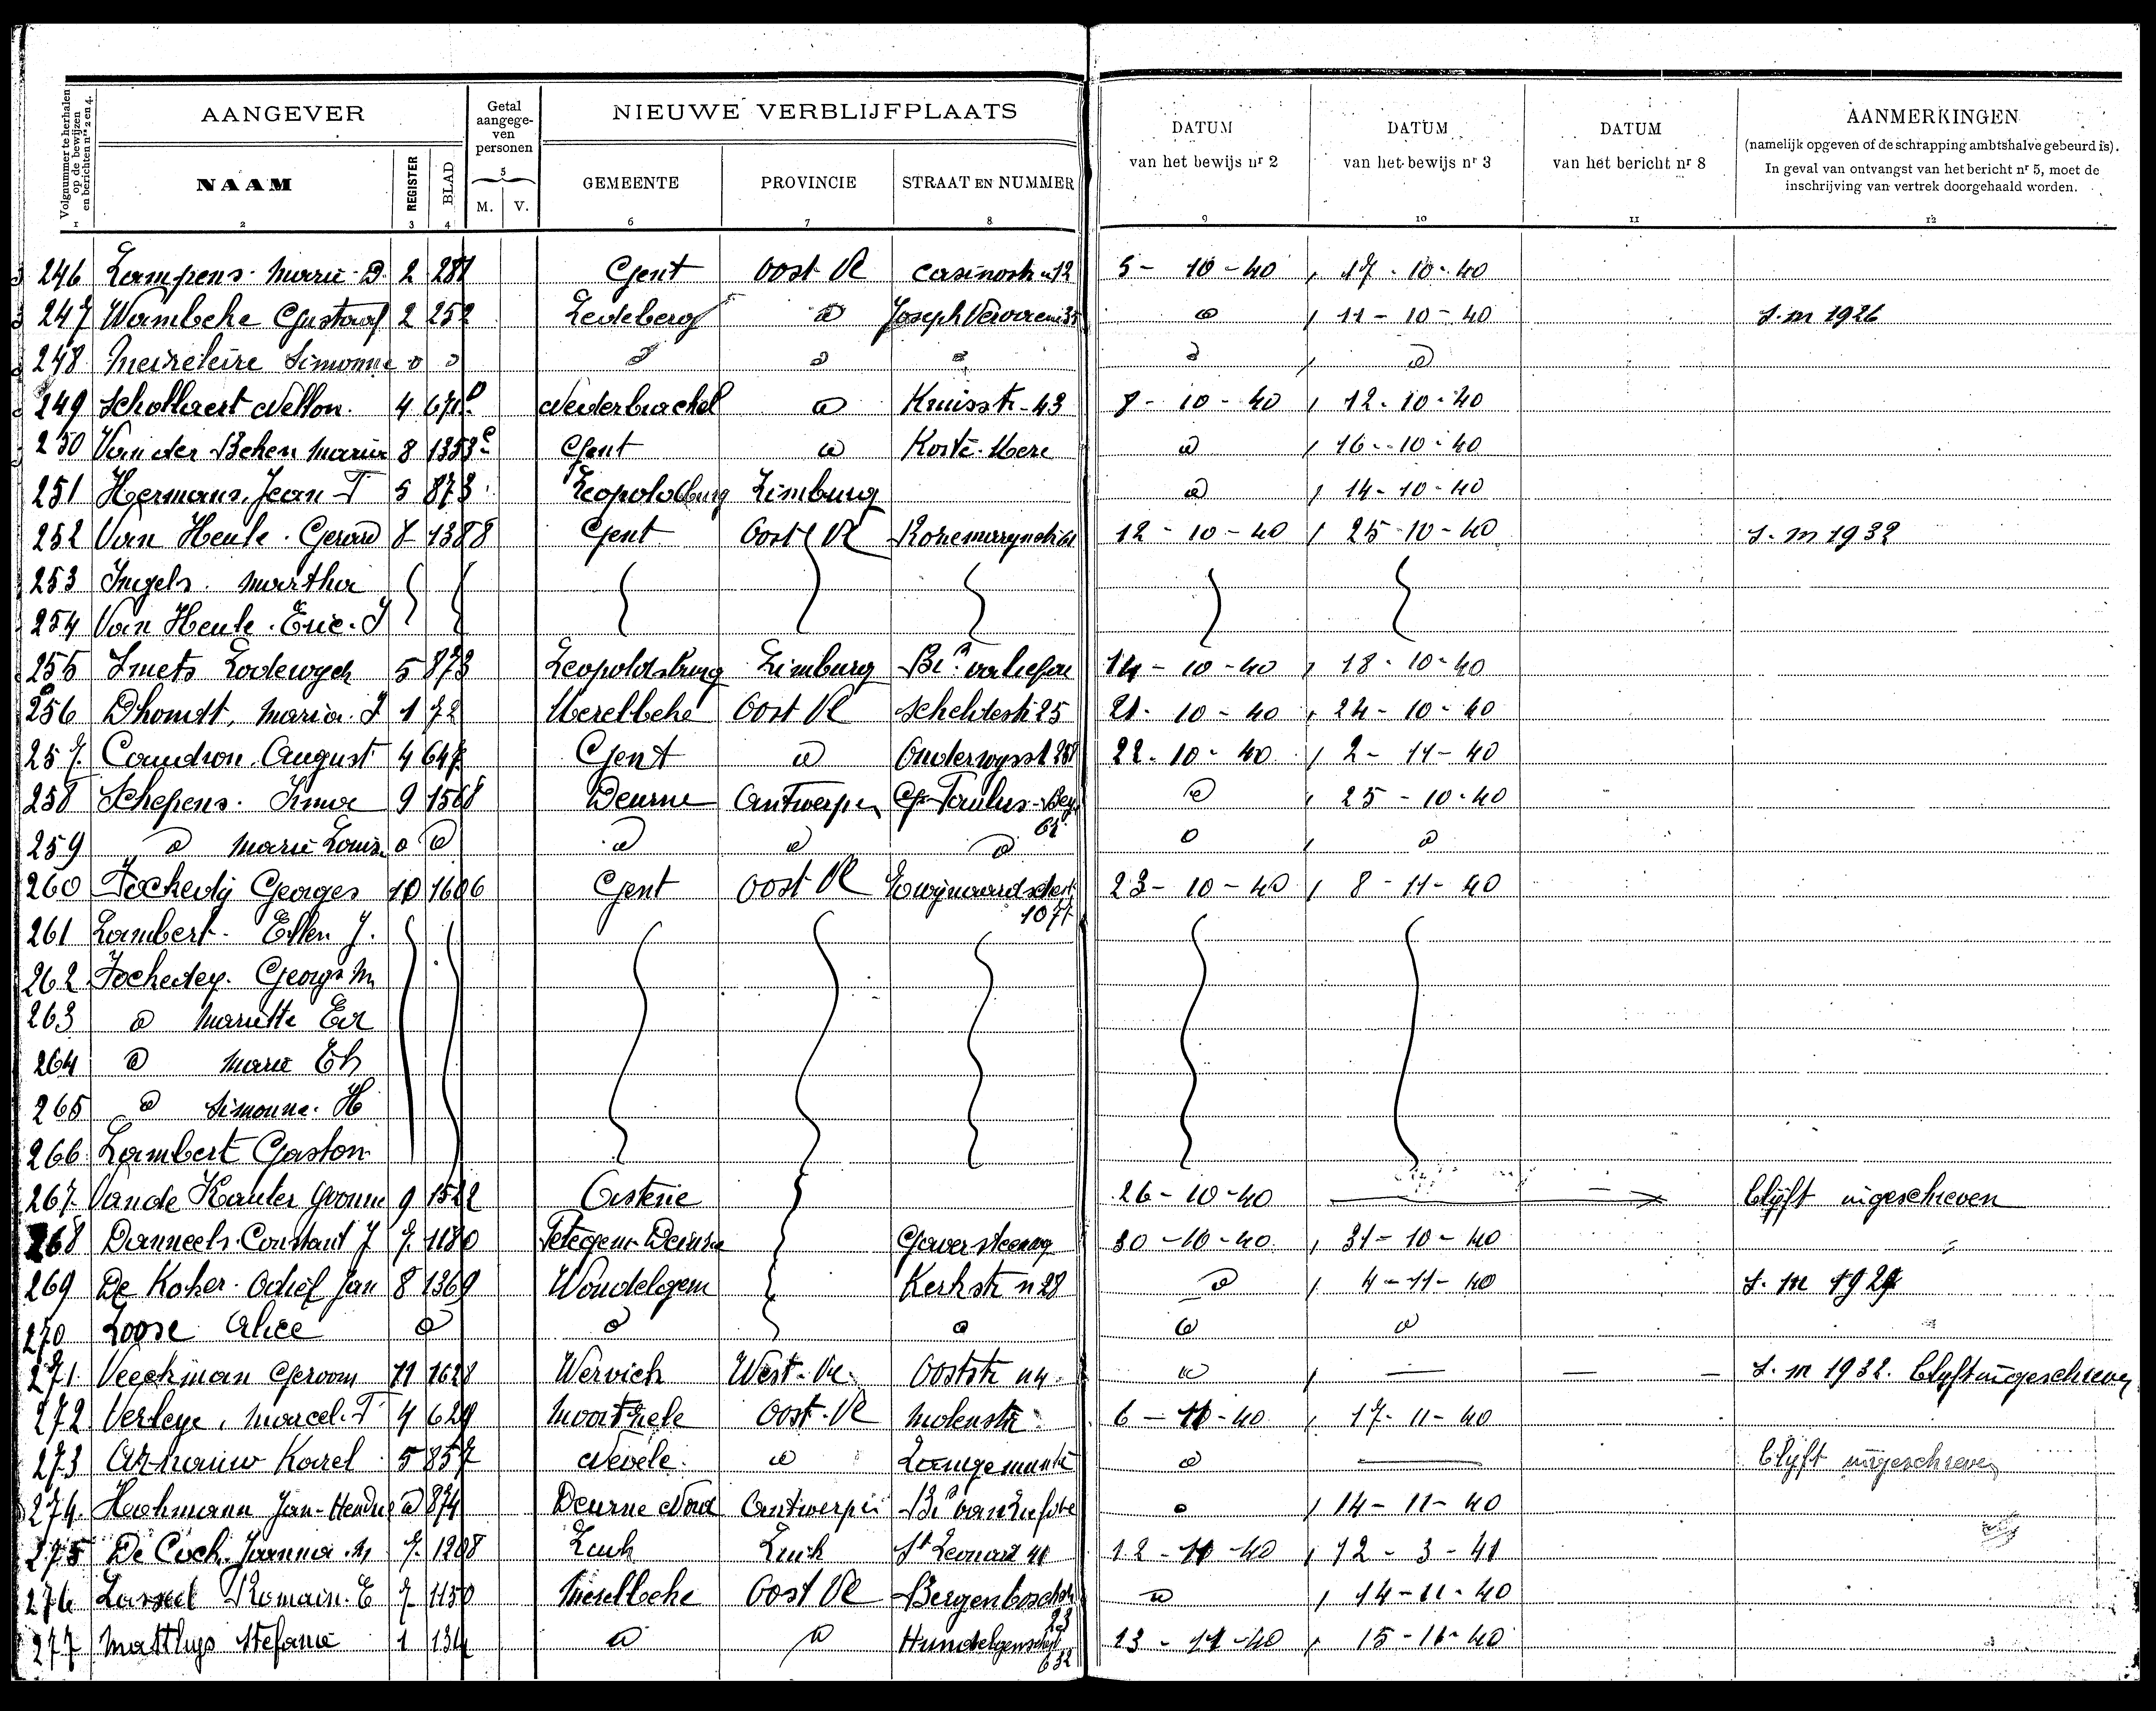 Volgnummer te herhalen op de bewijzen en berichten nrs 2 en 4.
AANGEVER
Getal aangegeven personen
NIEUWE VERBLIJFPLAATS
DATUM van het bewijs nr 2
DATUM van het bewijs nr 3
DATUM van het bericht nr 8
AANMERKINGEN
(namelijk opgeven of de schrapping ambtshalve gebeurd is).
In geval van ontvangst van het bericht nr 5, moet de
inschrijving van vertrek doorgehaald worden.
NAAM REGISTER BLAD M. V. GEMEENTE PROVINCIE STRAAT EN NUMMER
1 2 3 4 5 6 7 8 9 10 11 12
246 Lampens Marie D. 2 281 Gent Oost Vl Casinostr 12 5-10-40 17-10-40
247 Wambeke Gustaaf 2 252 Ledeberg d Joseph 11-10-40 S.m 1926
248 Simonne d d d d d d
249 Schollaert Nellon 4 671 Nederbrachel d Kruisstr-43 8-10-40 12-10-40
250 Van der Beken Maria 8 1353 Gent d Korte Mere d 16-10-40
251 Hermans Jean T 5 873 Leopoldsburg Limburg d 14-10-40
252 Van Heule Gerard 8 1388 Gent Oost Vl 12-10-40 25-10-40 S.m 1932
253 Ingels Martha
254 Van Heule Eric J
255 Smets Lodewych 5 873 Leopoldsburg Limburg 14-10-40 18-10-40
256 Dhondt, Maria J 1 72 Merelbeke Oost Vl Scheldestr 25 21-10-40 24-10-40
257 Caudron August 4 647 Gent d Onderwysst 22-10-40 2-11-40
258 Schepens Irma 9 1568 Deurne Antwerpen d 25-10-40
259 d Marie Louise d d d d d d d
260 Fockedij Georges 10 1606 Gent Oost Vl 23-10-40 8-11-40
261 Lambert Ellen J.
262 Fockedey Georges M
263 d Mariette
264 d Marie
265 d Simonne H
266 Lambert Gaston
267 Van de Kauter Yvonne 9 1522 Oisterie 26-10-40 blijft ingeschreven
268 Danneels Constant J 7 1180 Petegem Deinze 30-10-40 31-10-40
269 De Koker Odiel Jan 8 1369 Wondelgem Kerkstr n 28 d 4-11-40 S.m 1929
270 Loose Alice d d d d d
271 Veeckman Geroom 11 1628 Wervick West-Vl. Ooststr n 4 d — — — S.m 1932. blyft ingeschreven
272 Verleye, Marcel T 4 629 Moortzele Oost-Vl Molenstr 6-11-40 17-11-40
273 Karel 5 857 Nevele d Langemunte d — blyft ingeschreven
274 Hohmann Jan-Hendrik d 874 Deurne Noord Antwerpen d 14-11-40
275 De Cock Joanna M 7 1208 Luik Luik St Leonard 41 12-11-40 12-3-41
276 Romain E 7 1150 Merelbeke Oost Vl Bergenboschstr 23 d 14-11-40
277 Matthys Stefanie 1 134 d d 632 13-11-40 15-11-40